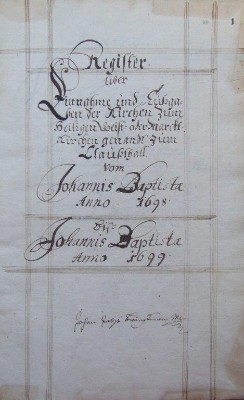 1
Register
über
Einnahme und Außga-
ben der Kirchen zum
Heiligen Geist oder Marckt-
Kirchen genandt zum
Claußthall
vom
Johannis Baptista
Anno 1698
Biß
Johannis Baptista
Anno 1699.
Johan